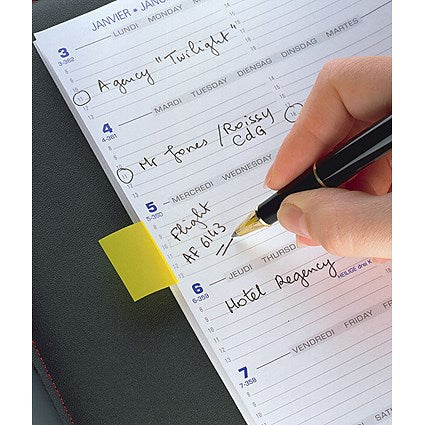 JANVIER • JANU
LUNDI MONDAY M
3
3-362
Agency "Twilight"
MARDI TUESDAY DIENSTAG DINSDAG MARTES
4
4-361
Mr Jones / Roissy
CdG
MERCREDI WEDNESDAY
5
5-360
Flight
AF 6143
JEUDI THURSD
6
6-359
HEILIGE drei K
Hotel Regency
VENDREDI FRIDAY F
7
7-358